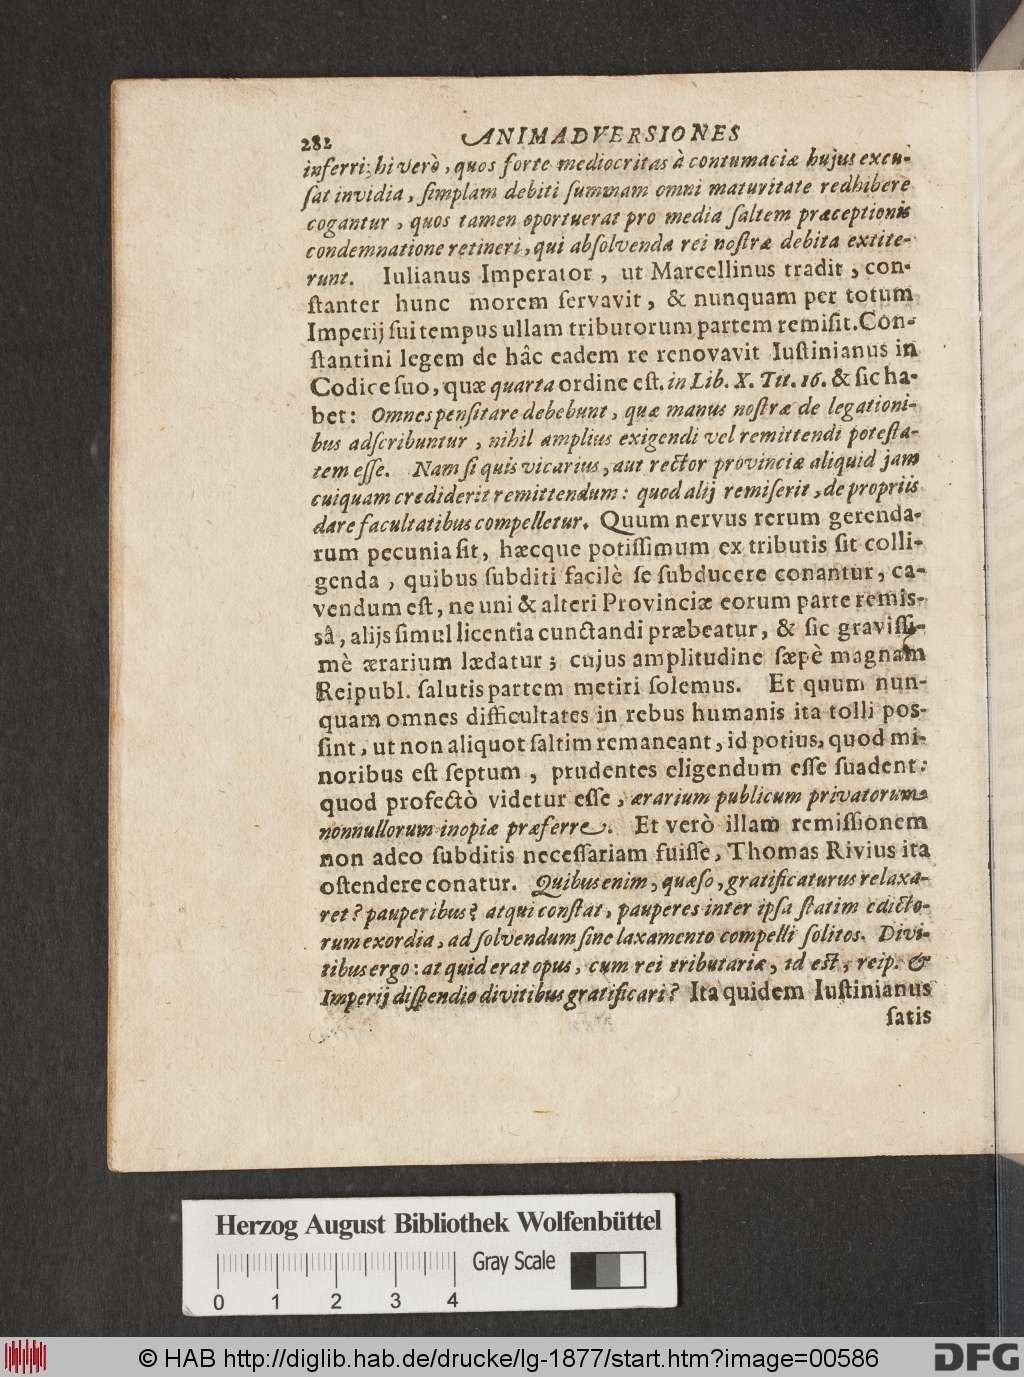 282 ANIMADVERSIONES
inferri; hi verò, quos forte mediocritas à contumaciæ hujus excu-
ſat invidia, ſimplam debiti ſummam omni maturitate redhibere
cogantur, quos tamen oportuerat pro media ſaltem præceptionis
condemnatione retineri, qui abſolvenda rei noſtræ debita extite-
runt. Iulianus Imperator, ut Marcellinus tradit, con-
ſtanter hunc morem ſervavit, & nunquam per totum
Imperij ſui tempus ullam tributorum partem remiſit. Con-
ſtantini legem de hâc eadem re renovavit Iuſtinianus in
Codice ſuo, quæ quarta ordine eſt. in Lib. X. Tit. 16. & ſic ha-
bet: Omnes penſitare debebunt, quæ manus noſtræ de legationi-
bus adſcribuntur, nihil amplius exigendi vel remittendi poteſta-
tem eſſe. Nam ſi quis vicarius, aut rector provinciæ aliquid jam
cuiquam crediderit remittendum: quod alij remiſerit, de propriis
dare facultatibus compelletur. Quum nervus rerum gerenda-
rum pecunia ſit, hæcque potiſſimum ex tributis ſit colli-
genda, quibus ſubditi facilè ſe ſubducere conantur, ca-
vendum eſt, ne uni & alteri Provinciæ eorum parte remiſ-
sâ, alijs ſimul licentia cunctandi præbeatur, & ſic graviſſi-
mè ærarium lædatur; cujus amplitudine ſæpè magnam
Reipubl. ſalutis partem metiri ſolemus. Et quum nun-
quam omnes difficultates in rebus humanis ita tolli poſ-
ſint, ut non aliquot ſaltim remaneant, id potius, quod mi-
noribus eſt ſeptum, prudentes eligendum eſſe ſuadent:
quod profectò videtur eſſe, ærarium publicum privatorum
nonnullorum inopiæ præferre. Et verò illam remiſſionem
non adeo ſubditis neceſſariam fuiſſe, Thomas Rivius ita
oſtendere conatur. Quibus enim, quæſo, gratificaturus relaxa-
ret? pauperibus? atqui conſtat, pauperes inter ipſa ſtatim edicto-
rum exordia, ad ſolvendum ſine laxamento compelli ſolitos. Divi-
tibus ergo: at quid erat opus, cum rei tributariæ, id eſt, reip. &
Imperij diſpendio divitibus gratificari? Ita quidem Iuſtinianus
ſatis
Herzog August Bibliothek Wolfenbüttel
Gray Scale
0 1 2 3 4
© HAB http://diglib.hab.de/drucke/lg-1877/start.htm?image=00586
DFG